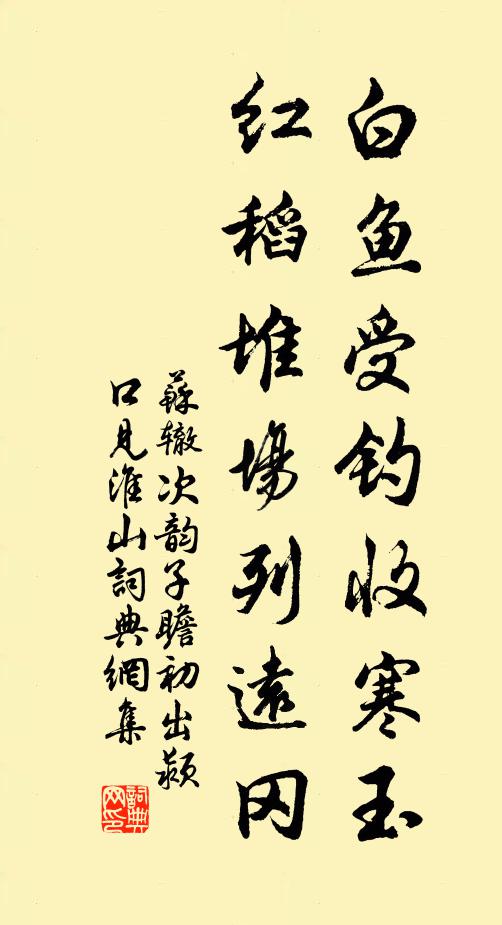 白鱼受钓收寒玉
红稻堆場列遠冈
蘇辙次韵子瞻初出颍
口見淮山詞典網集
詞典网印